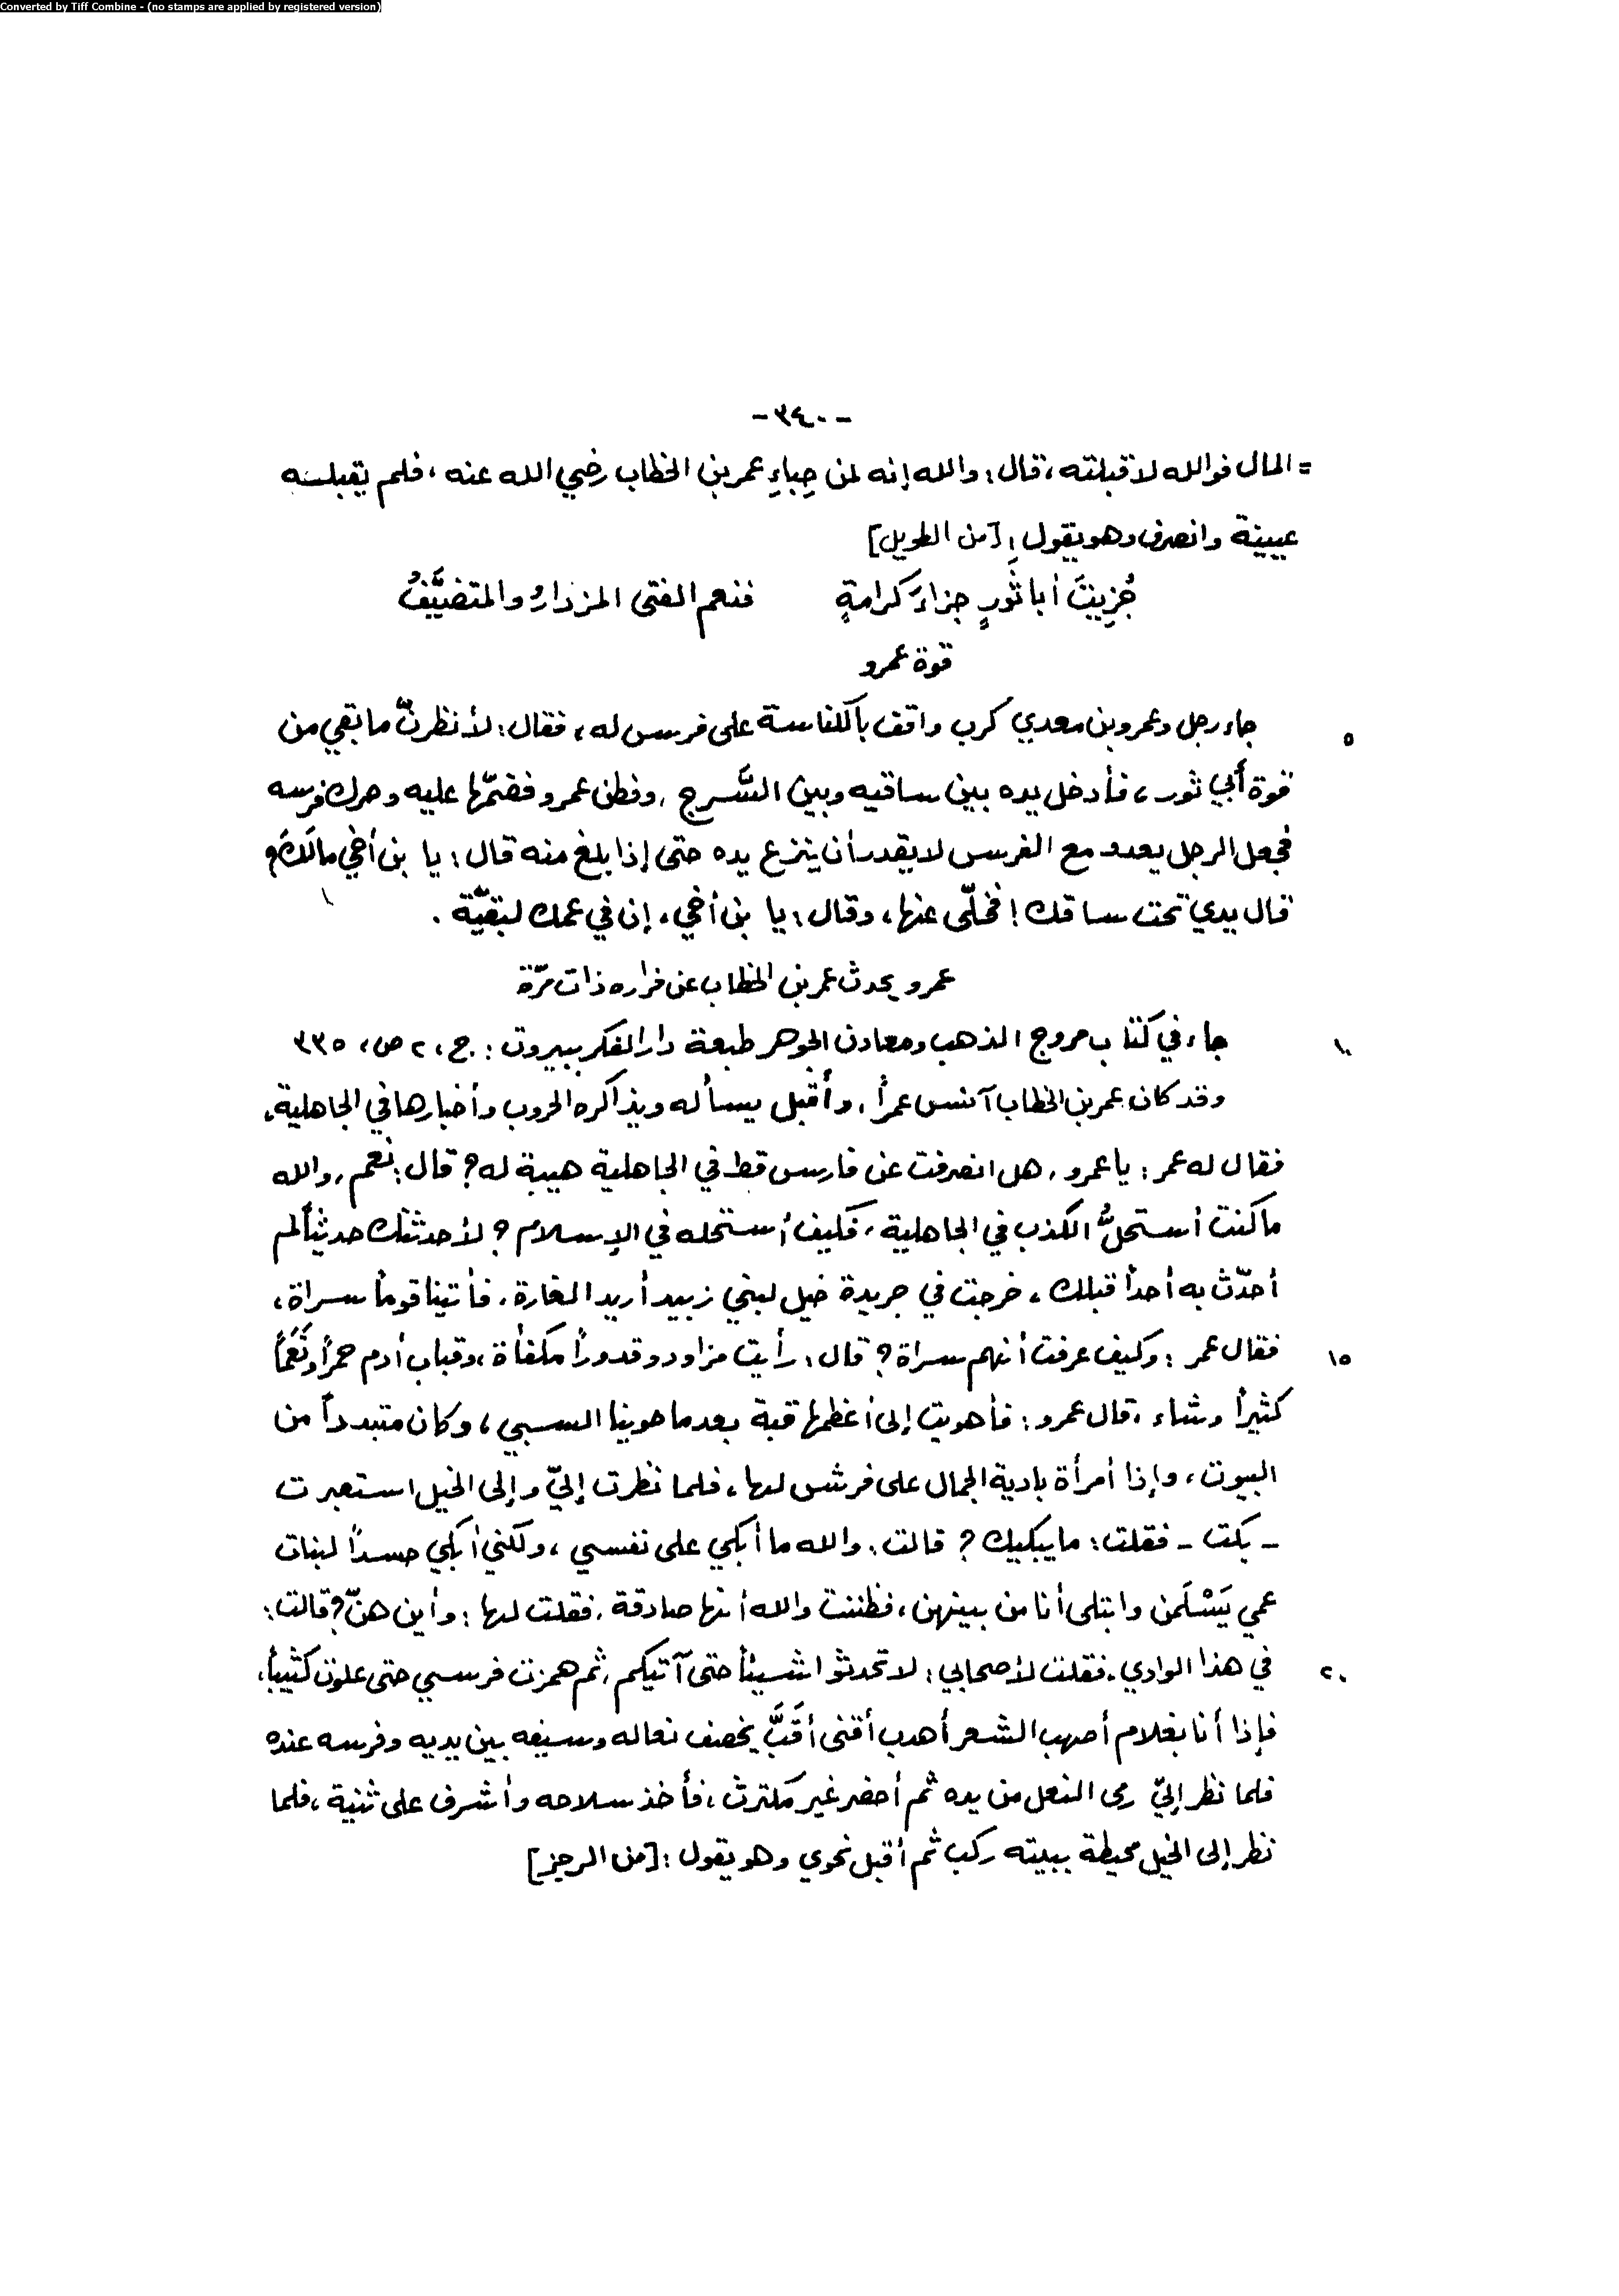 Converted by Tiff Combine - (no stamps are applied by registered version)
-٣٤٠-
= المال فوالله لا قبلته، قال: والله إنه لمن حِباءِ عمر بن الخطاب رضي الله عنه، فلم يقبلـه
عيينة وانصرف وهو يقول: [من الطويل]
جُزِيتَ أبا ثَورٍ جزاءَ كرامةٍ فنعم الفتى المزدارُ والمتضيَّفُ
قوة عمرو
جاء رجل وعمرو بن معدي كرب واقف بالكناسة على فرس له، فقال: لأنظرنّ ما بقي من
٥
قوة أبي ثور، فأدخل يده بين ساقيه وبين السَّرج، وفطن عمرو فضمّها عليه وحرك فرسه
فجعل الرجل يعدو مع الفرس لا يقدر أن ينزع يده حتى إذا بلغ منه قال: يا بن أخي مالَكَ؟
قال يدي تحت ساقك! فخلّى عنها، وقال: يا بن أخي، إن في عمك لبقيَّة.
عمرو يحدث عمر بن الخطاب عن فراره ذات مرّة
جاء في كتاب مروج الذهب ومعادن الجوهر طبعة دار الفكر ببيروت: ج، ٢ ص، ٣٣٥
١٠
وقد كان عمر بن الخطاب آنس عمراً، وأقبل يسأله ويذاكره الحروب وأخبارها في الجاهلية،
فقال له عمر: يا عمرو، هل انصرفت عن فارس قط في الجاهلية هيبة له؟ قال: نعم، والله
ما كنت أستحلُّ الكذب في الجاهلية، فكيف أستحله في الإسلام؟ لأحدثنك حديثاً لم
أحدّث به أحداً قبلك، خرجت في جريدة خيل لبني زبيد أريد الغارة، فأتينا قوماً سراة،
فقال عمر: وكيف عرفت أنهم سراة؟ قال: رأيت مزاود وقدوراً مكفأة، وقباب أدم حمراً ونَعَماً
١٥
كثيراً وشاء، قال عمرو: فأهويت إلى أعظمها قبة بعد ما حوينا السبي، وكان متبدداً من
البيوت، وإذا أمرأة بادية الجمال على فرش لها، فلما نظرت إليّ وإلى الخيل استعبرت
- بكت - فقلت: ما يبكيك؟ قالت: والله ما أبكي على نفسي، ولكني أبكي حسداً لبنات
عمي يَسْلَمن وابتلى أنا من بينهن، فظننت والله أنها صادقة، فقلت لها: وأين هنّ؟ قالت:
في هذا الوادي، فقلت لأصحابي: لا تحدثوا شيئاً حتى آتيكم، ثم همزت فرسي حتى علوت كثيباً،
٢٠
فإذا أنا بغلام أصهب الشعر أهدب أقنى أقَبَّ يخصف نعاله وسيفه بين يديه وفرسه عنده
فلما نظر إليّ رمى النعل من يده ثم أحضر غير مكترث، فأخذ سلاحه وأشرف على ثنية، فلما
نظر إلى الخيل محيطة ببيته ركب ثم أقبل نحوي وهو يقول: [من الرجز]